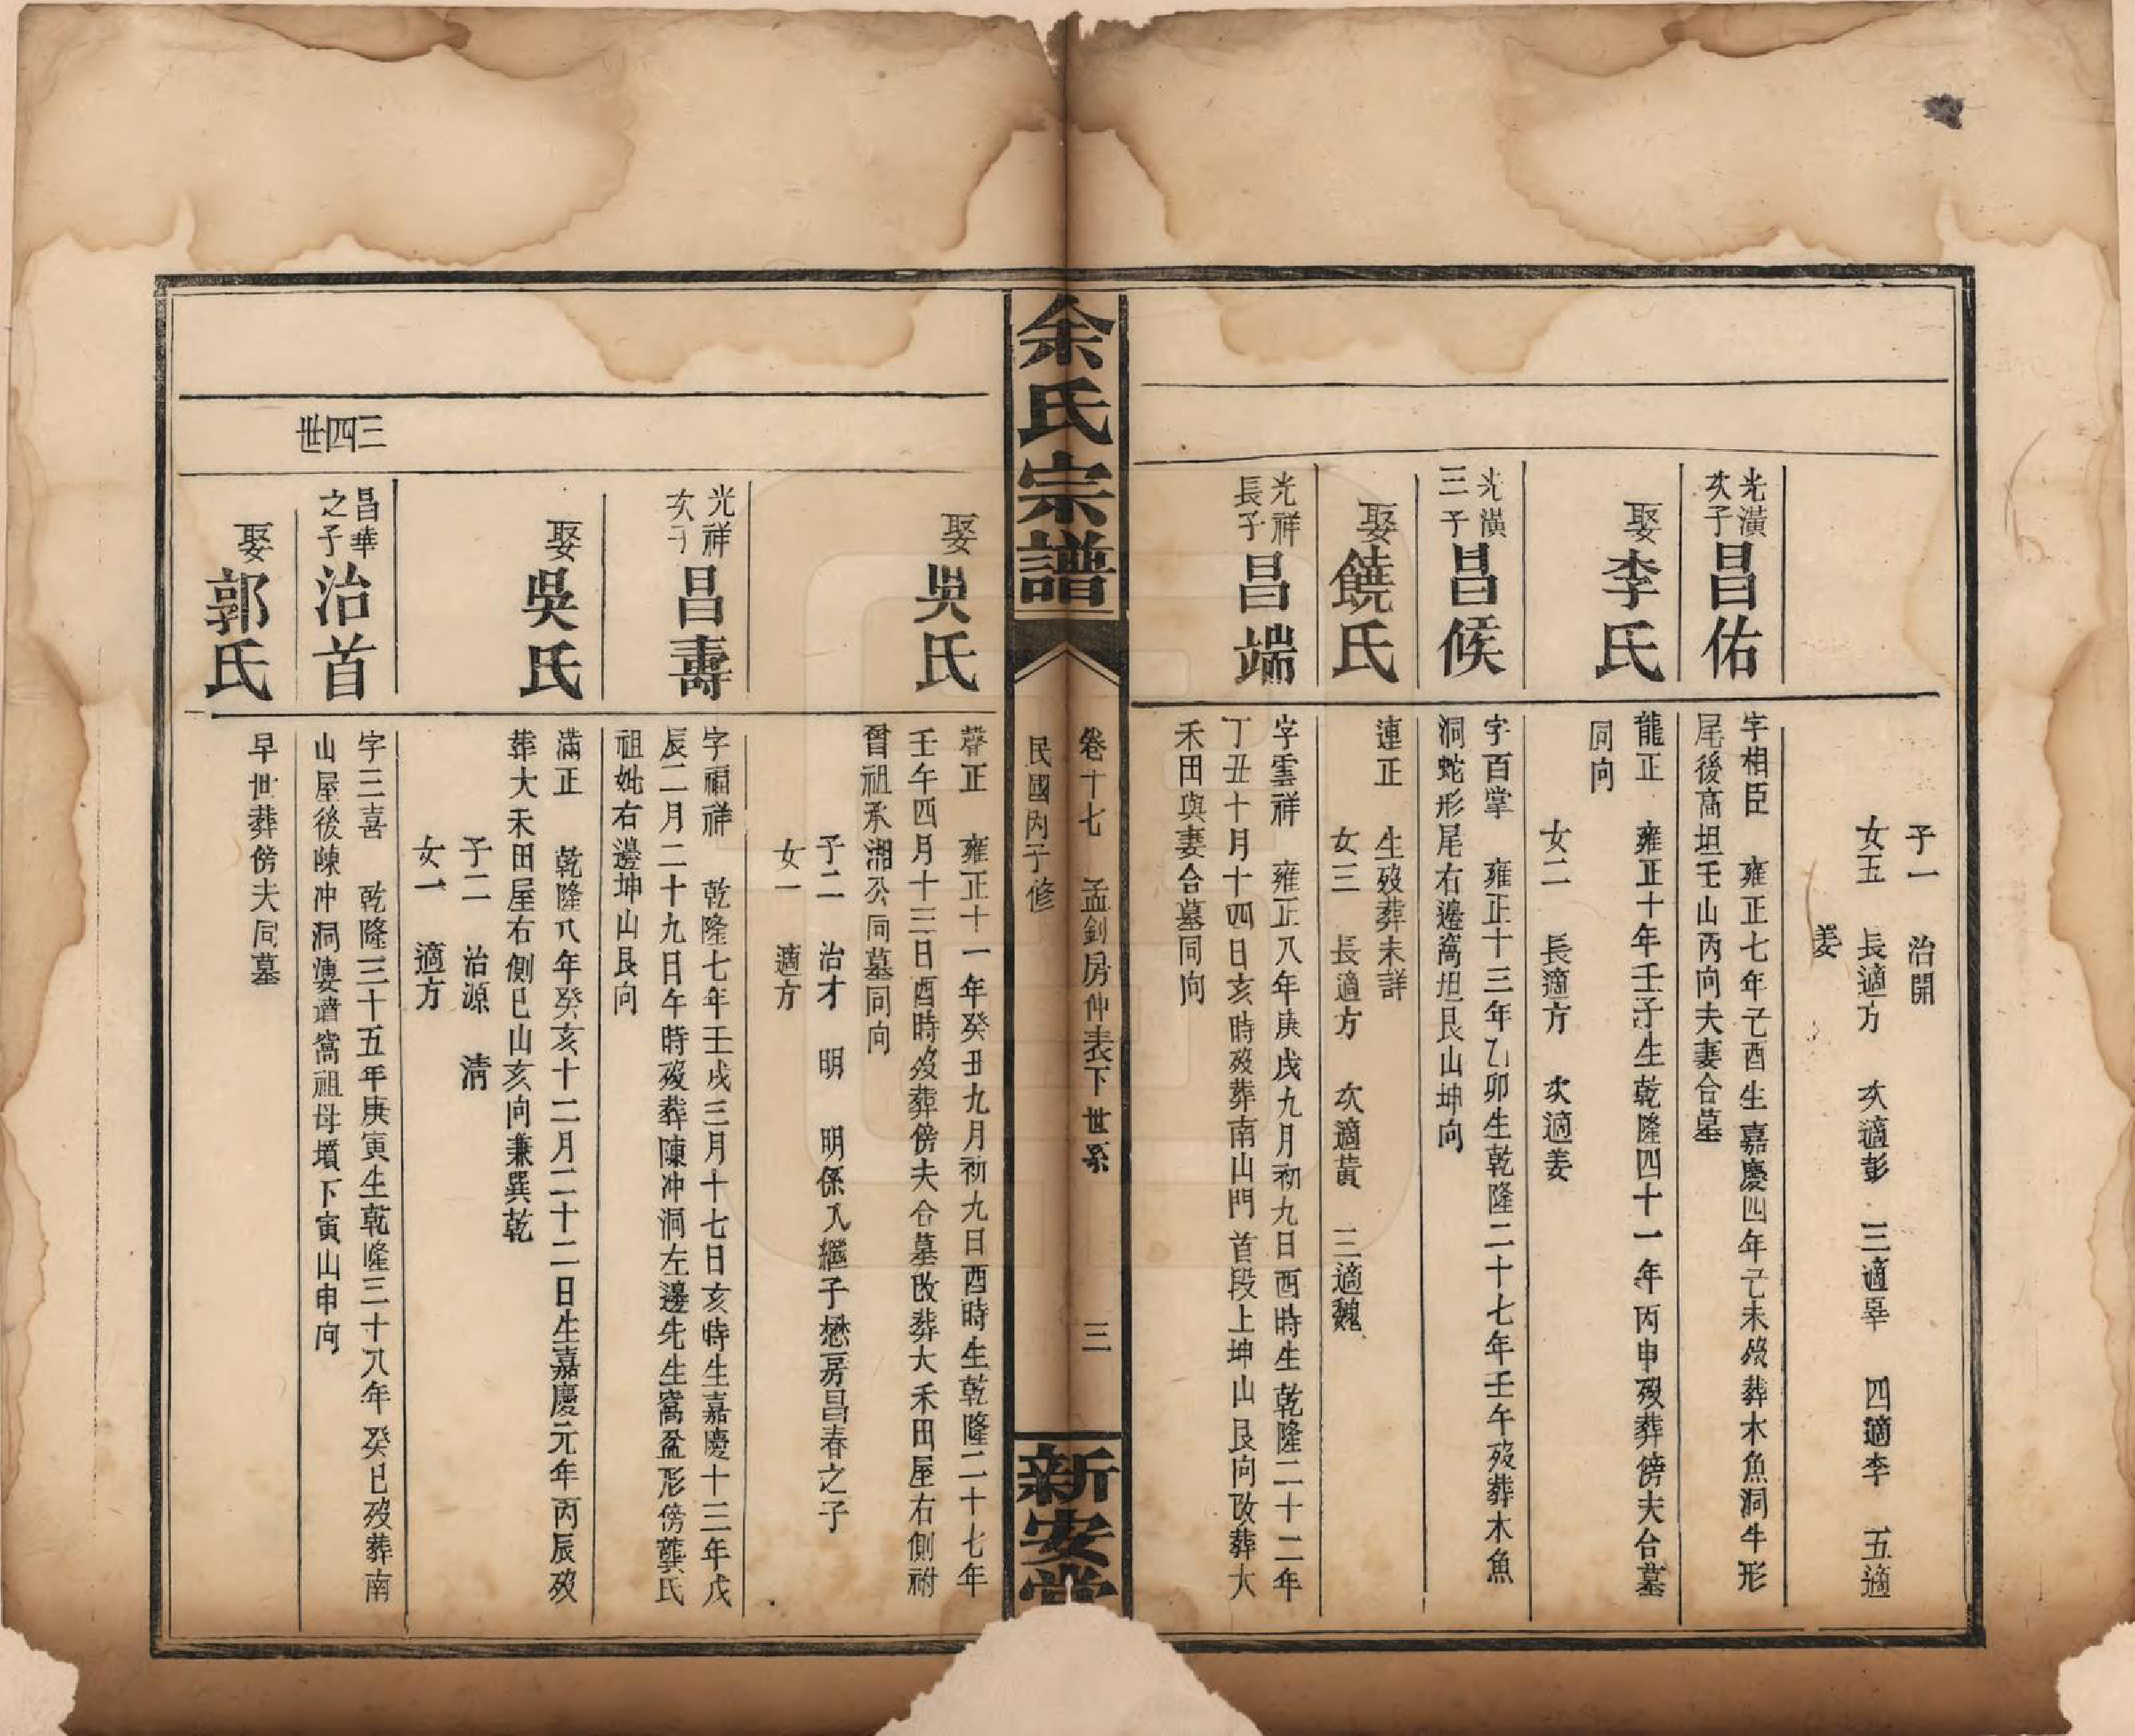 子一　治開
女五　長適方　次適彭　三適辜　四適李　五適
姜
光潢
次子
昌佑
字相臣　雍正七年己酉生嘉慶四年己未歿葬木魚洞牛形
尾後高坦壬山丙向夫妻合墓
娶李氏
龍正　雍正十年壬子生乾隆四十一年丙申歿葬傍夫合墓
同向
女二　長適方　次適姜
光潢
三子
昌候
字百掌　雍正十三年乙卯生乾隆二十七年壬午歿葬木魚
洞蛇形尾右邊窩坦艮山坤向
娶饒氏
連正　生歿葬未詳
女三　長適方　次適黃　三適魏
光祥
長子
昌端
字雲祥　雍正八年庚戌九月初九日酉時生乾隆二十二年
丁丑十月十四日亥時歿葬南山門首段上坤山艮向改葬大
禾田與妻合墓同向
余氏宗譜
卷十七　孟釗房仲表下世系　三
民國丙子修
新安堂
娶吳氏
聲正　雍正十一年癸丑九月初九日酉時生乾隆二十七年
壬午四月十三日酉時歿葬傍夫合墓改葬大禾田屋右側祔
曾祖承湘公同墓同向
子二　治才　明　明係入繼子懋房昌春之子
女一　適方
光祥
次子
昌壽
字福祥　乾隆七年壬戌三月十七日亥時生嘉慶十三年戊
辰二月二十九日午時歿葬陳冲洞左邊先生窩盆形傍龔氏
祖妣右邊坤山艮向
娶吳氏
滿正　乾隆八年癸亥十二月二十二日生嘉慶元年丙辰歿
葬大禾田屋右側巳山亥向兼巽乾
子二　治源　清
女一　適方
三四世
昌華
之子
治首
字三喜　乾隆三十五年庚寅生乾隆三十八年癸巳歿葬南
山屋後陳冲洞婁譜窩祖母墳下寅山申向
娶郭氏
早世葬傍夫同墓